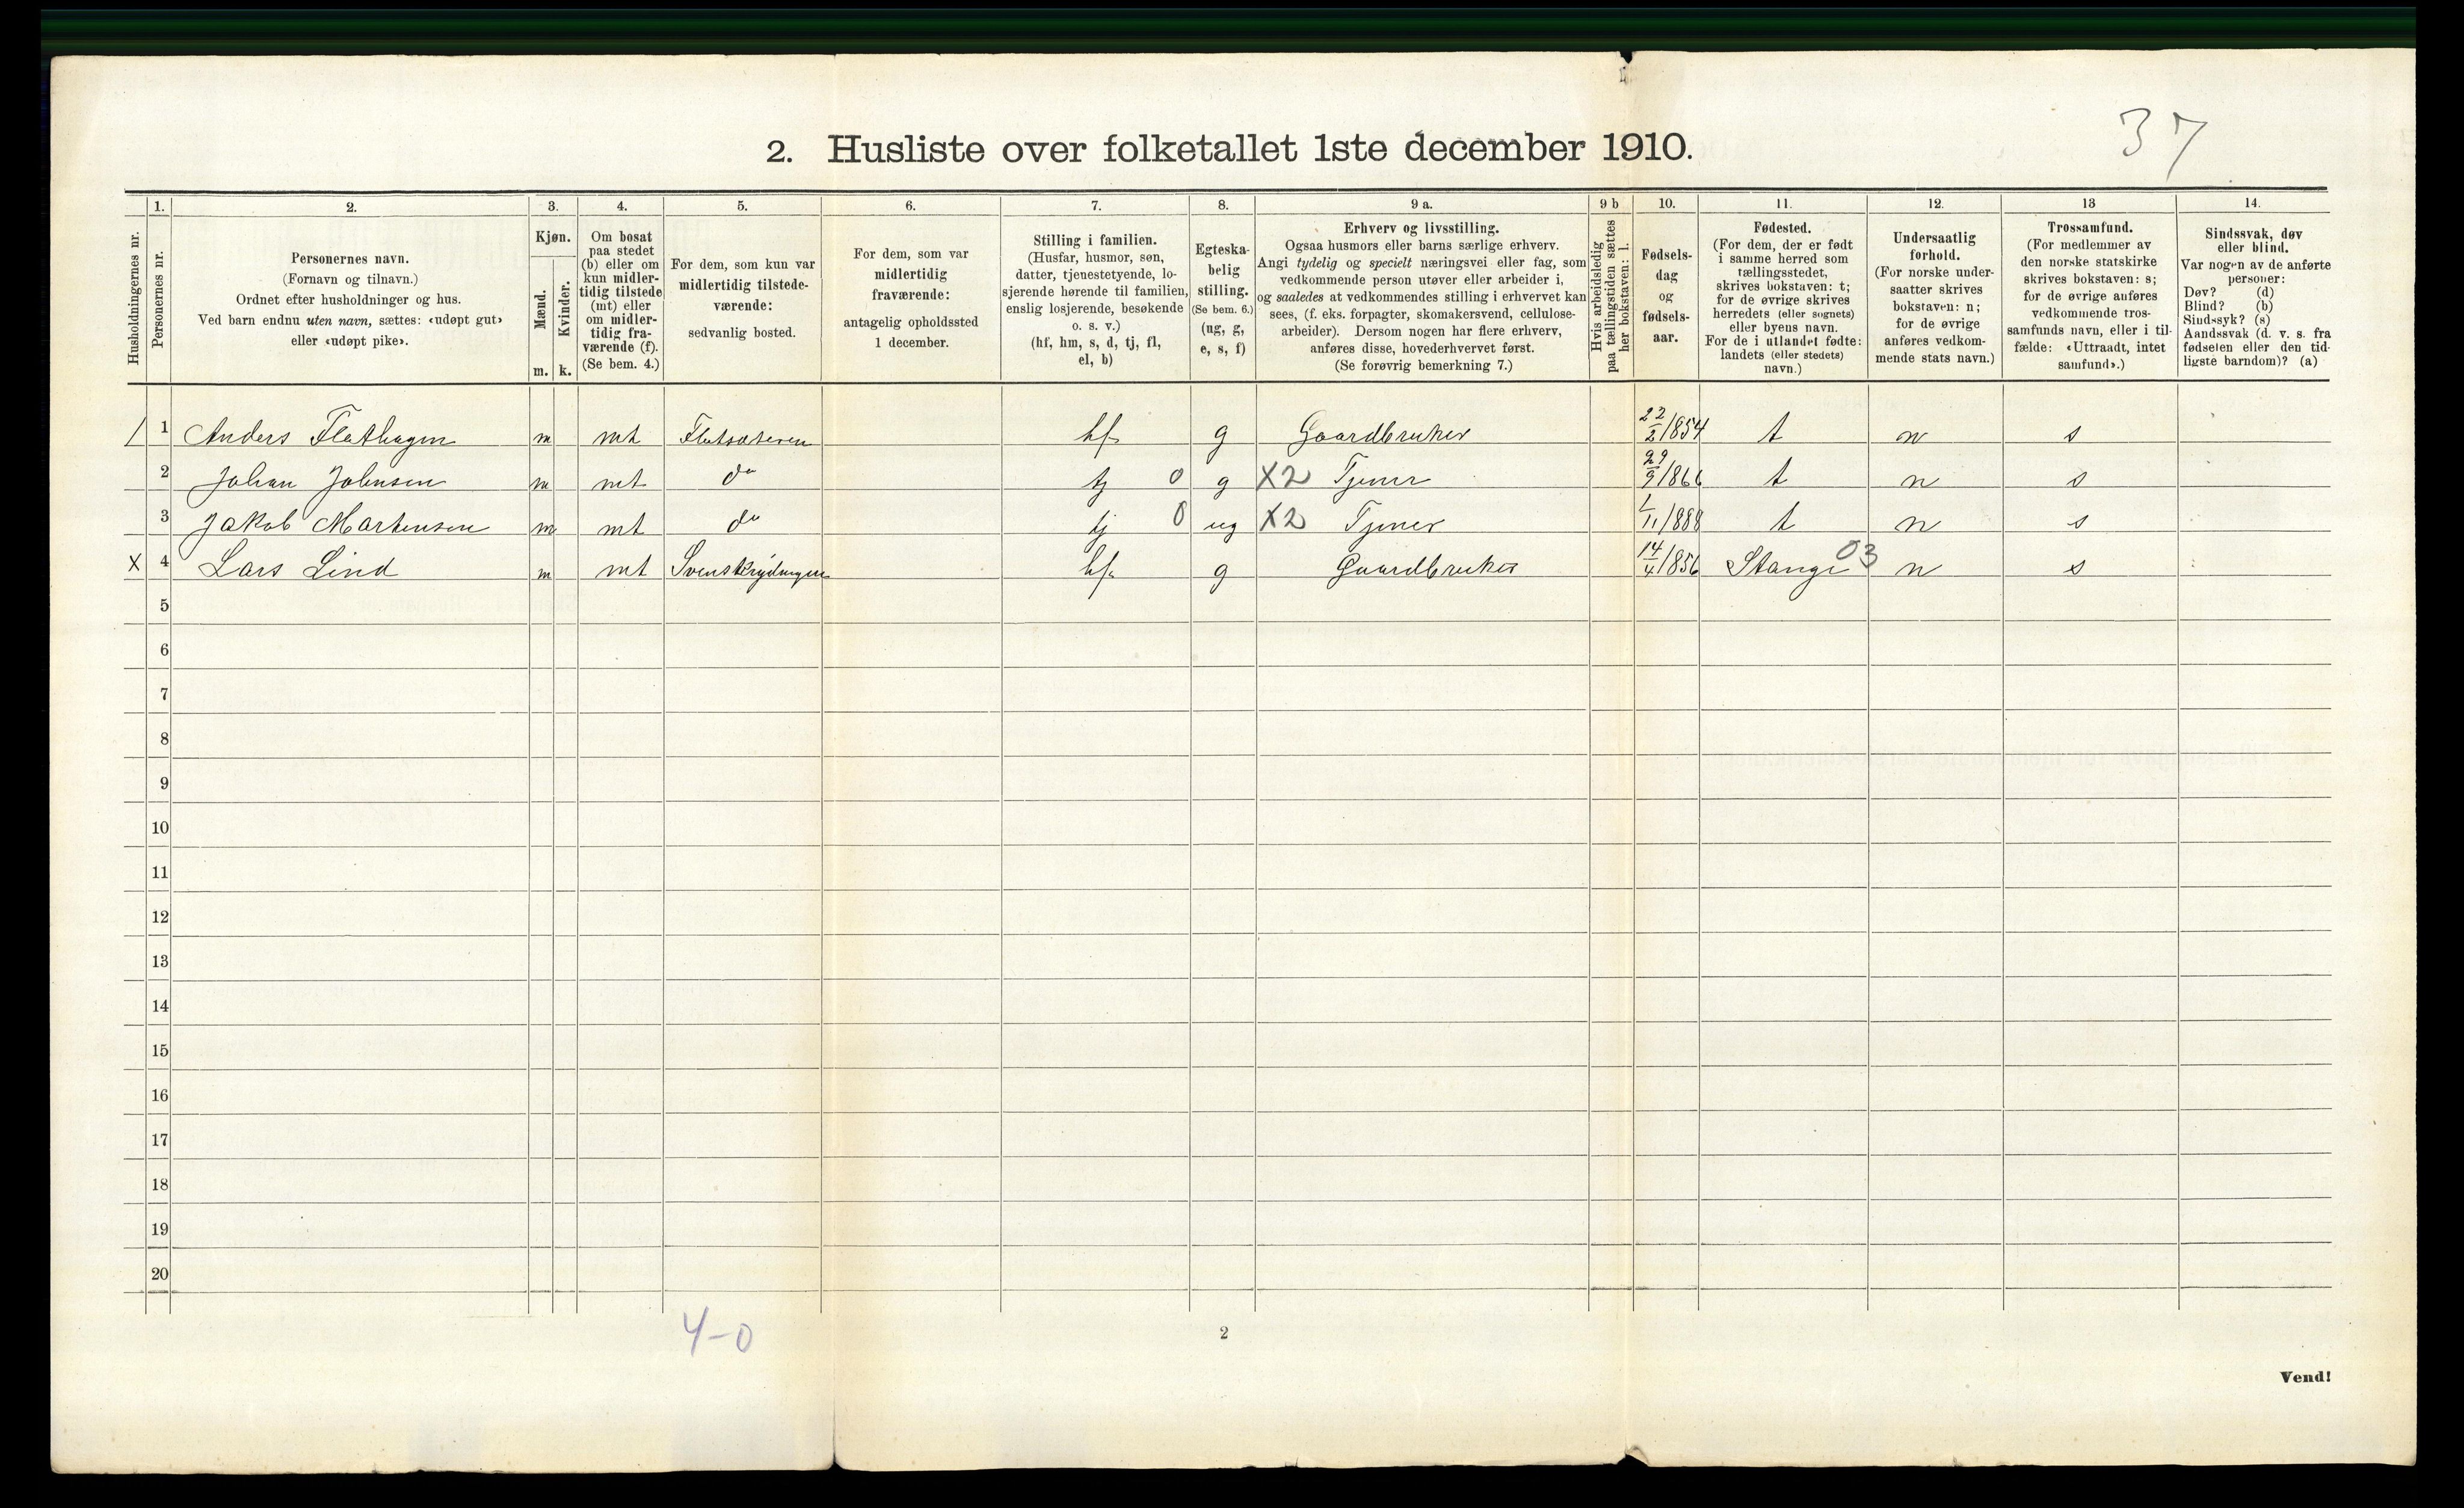 37
2. Husliste over folketallet 1ste december 1910.
Husholdningernes nr.
1.
Personernes nr.
2.
Personernes navn.
(Fornavn og tilnavn.)
Ordnet efter husholdninger og hus.
Ved barn endnu uten navn, sættes: «udøpt gut»
eller «udøpt pike».
3.
Kjøn.
Mænd.
Kvinder.
m. k.
4.
Om bosat
paa stedet
(b) eller om
kun midler-
tidig tilstede
(mt) eller
om midler-
tidig fra-
værende (f).
(Se bem. 4.)
5.
For dem, som kun var
midlertidig tilstede-
værende:
sedvanlig bosted.
6.
For dem, som var
midlertidig
fraværende:
antagelig opholdssted
1 december.
7.
Stilling i familien.
(Husfar, husmor, søn,
datter, tjenestetyende, lo-
sjerende hørende til familien,
enslig losjerende, besøkende
o. s. v.)
(hf, hm, s, d, tj, fl,
el, b)
8.
Egteska-
belig
stilling.
(Se bem. 6.)
(ug, g,
e, s, f)
9 a.
Erhverv og livsstilling.
Ogsaa husmors eller barns særlige erhverv.
Angi tydelig og specielt næringsvei eller fag, som
vedkommende person utøver eller arbeider i,
og saaledes at vedkommendes stilling i erhvervet kan
sees, (f. eks. forpagter, skomakersvend, cellulose-
arbeider). Dersom nogen har flere erhverv,
anføres disse, hovederhvervet først.
(Se forøvrig bemerkning 7.)
9 b
Hvis arbeidsledig
paa tællingstiden sættes
her bokstaven: l.
10.
Fødsels-
dag
og
fødsels-
aar.
11.
Fødested.
(For dem, der er født
i samme herred som
tællingsstedet,
skrives bokstaven: t;
for de øvrige skrives
herredets (eller sognets)
eller byens navn.
For de i utlandet fødte:
landets (eller stedets)
navn.)
12.
Undersaatlig
forhold.
(For norske under-
saatter skrives
bokstaven: n;
for de øvrige
anføres vedkom-
mende stats navn.)
13
Trossamfund.
(For medlemmer av
den norske statskirke
skrives bokstaven: s;
for de øvrige anføres
vedkommende tros-
samfunds navn, eller i til-
fælde: «Uttraadt, intet
samfund».)
14.
Sindssvak, døv
eller blind.
Var nogen av de anførte
personer:
Døv? (d)
Blind? (b)
Sindssyk? (s)
Aandssvak (d. v. s. fra
fødselen eller den tid-
ligste barndom)? (a)
/ 1 Anders Flathagen m mt Flatsæteren hf g Gaardbruker 22/2 1854 t n s
2 Johan Johnsen m mt do tj 0 g X2 Tjener 29/9 1866 t n s
3 Jakob Martensen m mt do tj 0 ug X2 Tjener 1/11 1888 t n s
X 4 Lars Lind m mt Svenskrydningen hf g Gaardbruker 14/4 1856 Stange 03 n s
5
6
7
8
9
10
11
12
13
14
15
16
17
18
19
20
4-0
2
Vend!